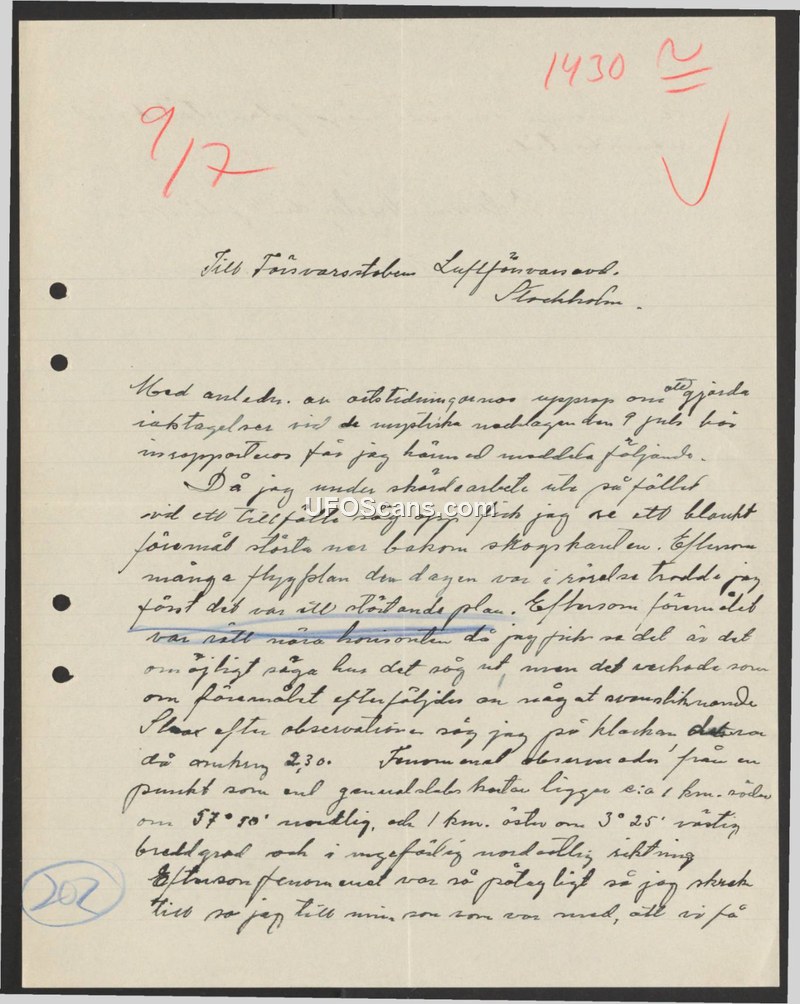 1430
9/7
Till Försvarsstaben Luftförsvarsavd.
Stockholm.
Med anledn. av ortstidningarnas upprop om att gjorda
iaktagelser vid de mystiska den 9 juli bör
inrapporteras får jag härmed meddela följande.
Då jag under skördearbete ute på fältet
vid ett tillfälle såg upp fick jag se ett blankt
föremål störta ner bakom skogskanten. Eftersom
många flygplan den dagen var i rörelse trodde jag
först det var ett störtande plan. Eftersom föremålet
var rätt nära horisonten då jag fick se det är det
omöjligt säga hur det såg ut, men det verkade som
om föremålet efterföljdes av något svansliknande
Strax efter observationen såg jag på klockan, det var
då omkring 2,30. Fenomenet observerades från en
punkt som enl generalstabskartan ligger c:a 1 km. söder
om 57° 50' nordlig, och 1 km. öster om 3° 25' västlig
breddgrad och i ungefärlig nordostlig riktning
Eftersom fenomenet var så påtagligt så jag skrek
till sa jag till min son som var med, att vi få
202
UFOScans.com